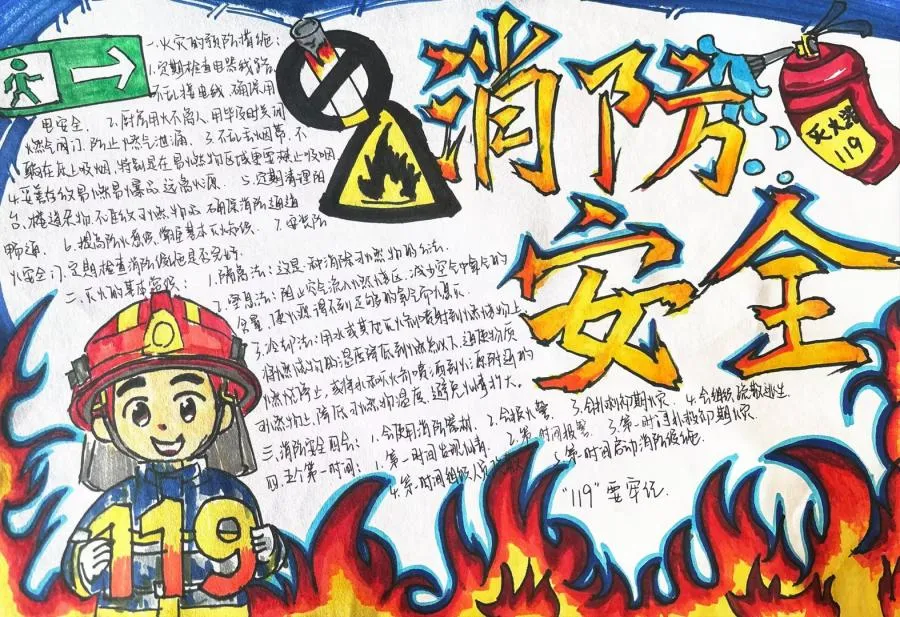 消防
安全
灭火器
119
一.火灾的预防措施:
1.定期检查电器线路,
不乱接电线,确保用
电安全. 2.厨房用火不离人,用毕及时关闭
燃气阀门,防止燃气泄漏. 3.不乱丢烟蒂,不
躺在床上吸烟,特别是在易燃物区域更要禁止吸烟
4.妥善存放易燃易爆品,远离火源. 5.定期清理阳
台、楼道杂物,不堆放可燃物品,确保消防通道
畅通. 6.提高防火意识,掌握基本灭火知识. 7.安装防
火安全门,定期检查消防设施是否完好.
二.灭火的基本
1.隔离法:这是一种消除可燃物的方法.
2.窒息法:阻止空气流入燃烧区,减少空气中氧气的
含量,使火源得不到足够的氧气而熄灭
3.冷却法:用水或其他灭火剂喷射到燃烧物上,
将燃烧物的温度降低到燃点以下,迫使物质
燃烧停止,或将水和灭火剂喷洒到火源附近的
可燃物上,降低可燃物温度,避免火情扩大.
三.消防安全四会: 1.会使用消防器材. 2.会报火警. 3.会扑救初期火灾. 4.会组织疏散逃生.
四.五个第一时间: 1.第一时间发现火情. 2.第一时间报警. 3.第一时间扑救初期火灾.
4.第一时间组织人员 5.第一时间启动消防设施.
"119"要牢记.
119